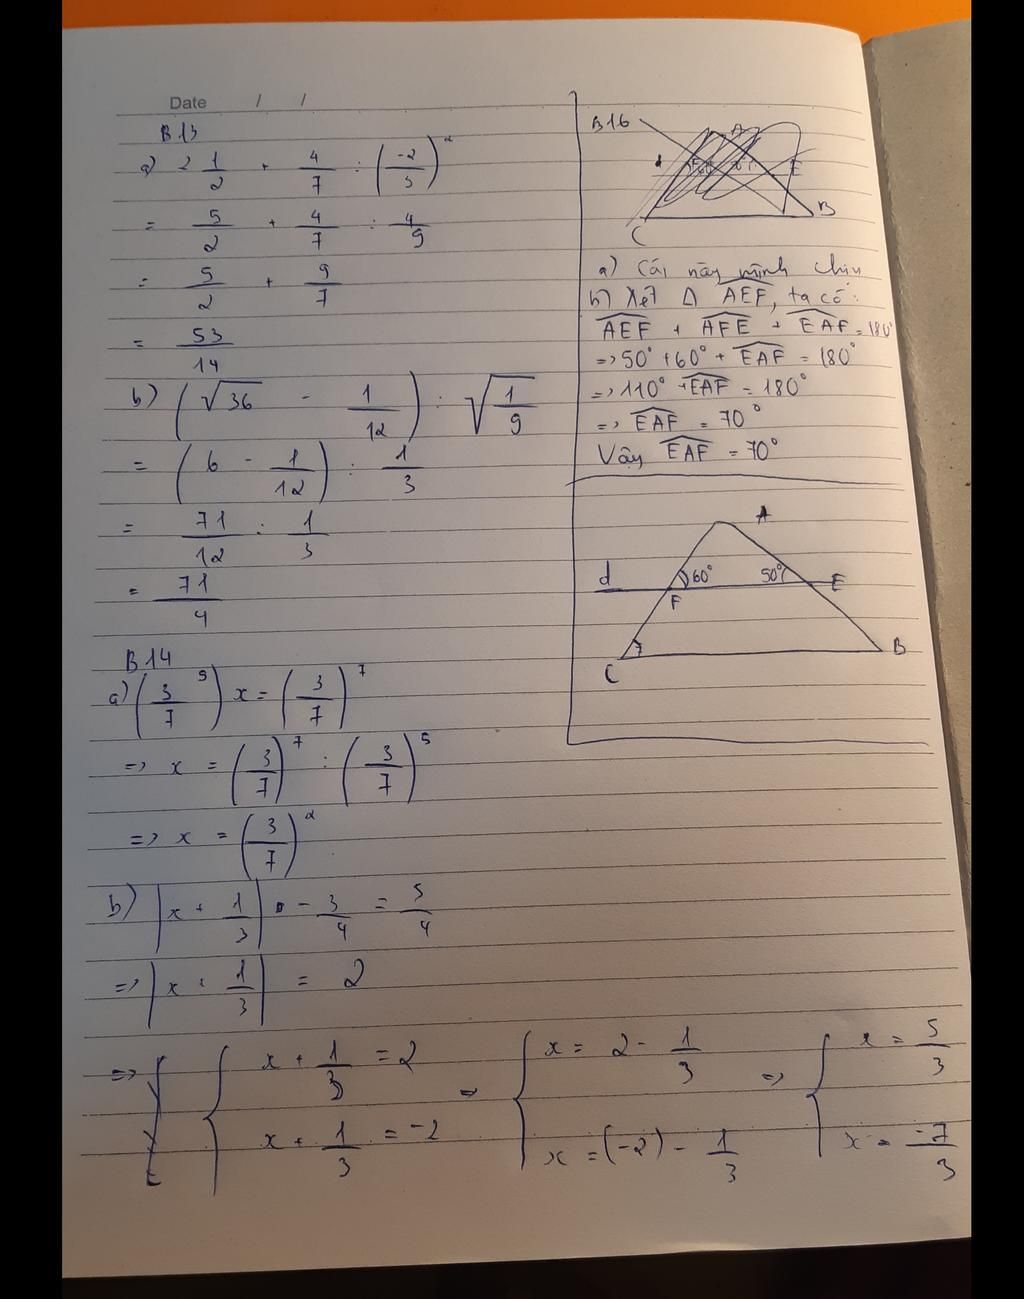 Date / /
B13
a) 2 1/2 + 4/7 : (-2/3)^2
= 5/2 + 4/7 : 4/9
= 5/2 + 9/7
= 53/14
b) (√36 - 1/12) : √(1/9)
= (6 - 1/12) : 1/3
= 71/12 : 1/3
= 71/4
B14
a) (3/7^5) x = (3/7)^7
=> x = (3/7)^7 : (3/7)^5
=> x = (3/7)^2
b) |x + 1/3| - 3/4 = 5/4
=> |x + 1/3| = 2
=> { x + 1/3 = 2 => { x = 2 - 1/3 => { x = 5/3
x + 1/3 = -2 x = (-2) - 1/3 x = -7/3
B16
A
E
B
C
a) Cái này mình chịu
b) Xét Δ AEF, ta có:
AEF + AFE + EAF = 180°
=> 50° + 60° + EAF = 180°
=> 110° + EAF = 180°
=> EAF = 70°
Vậy EAF = 70°
A
d 60° 50° E
F
C ? B